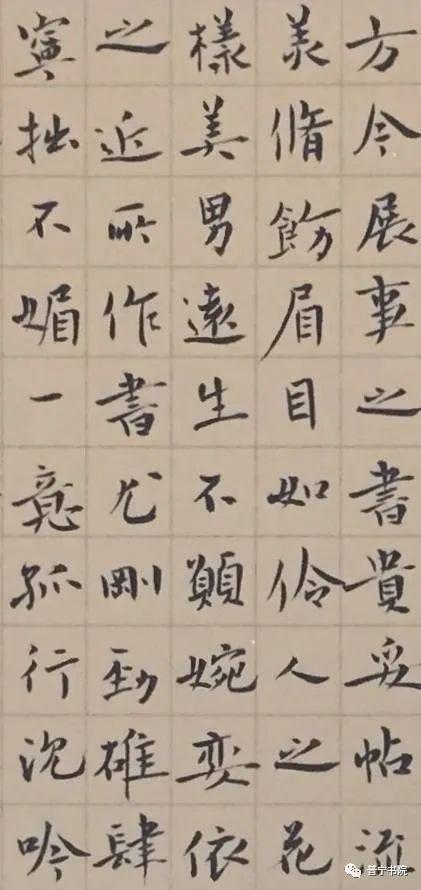 方今展事之書貴妥帖流
美脩飭眉目如伶人之花
樣美男遠生不願婉娈依
之近所作書尤剛勁雄肆
寧拙不媚一意孤行沉吟
普宁书院